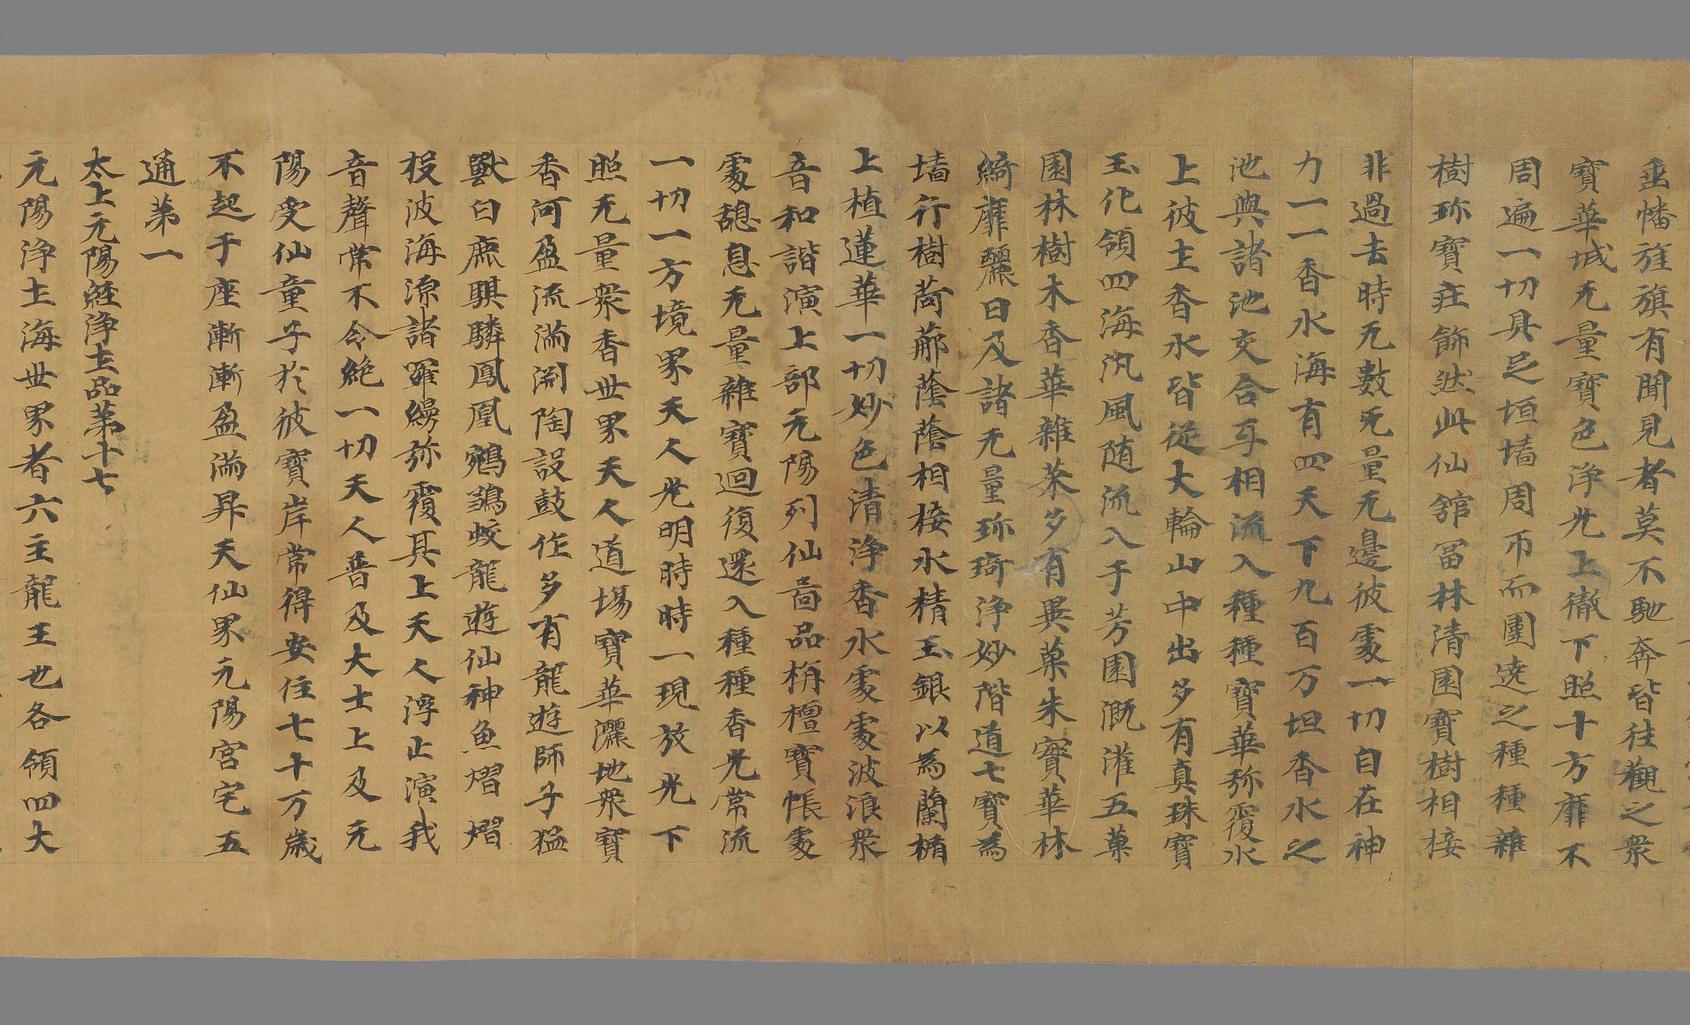 垂幡旌旗有聞見者莫不馳奔皆往觀之衆
寶華城无量寶色淨光上徹下照十方靡不
周遍一切具足垣墙周帀而圍遶之種種雜
樹珎寶莊飾然此仙舘冨林清園寶樹相接
非過去時无數无量无邊彼處一切自在神
力一一香水海有四天下九百万坦香水之
池與諸池交合互相流入種種寶華弥覆水
上彼主香水皆從大輪山中出多有真珠寶
玉化領四海汎風随流入于芳園溉灌五菓
園林樹木香華雜菜多有異菓朱實華林
綺靡麗日及諸无量珎琦淨妙階道七寶為
墙行樹蔭蔭相接水精玉銀以為蘭楯
上植蓮華一切妙色清淨香水處處波浪衆
音和諧演上部元陽列仙啚品栴檀寶帳處
處憩息无量雜寶迴復還入種種香光常流
一切一方境界天人光明時時一現放光下
照无量衆香世界天人道場寶華灑地衆寶
香河盈流滿淵陶設鼓作多有龍遊師子猛
獸白鹿騏驎鳳凰鵷鶵蛟龍遊仙神魚熠熠
投波海源諸羅縵弥覆其上天人渟止演我
音聲常不令絶一切天人普及大士上及元
陽受仙童子於彼寶岸常得安住七十万歲
不起于座漸漸盈滿昇天仙界元陽宮宅五
通第一
太上元陽經淨土品第十七
元陽淨土海世界者六主龍王也各領四大